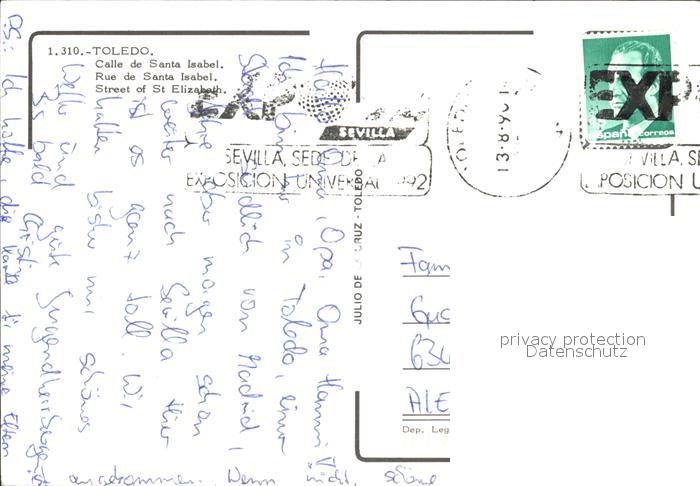 1.310.-TOLEDO.
Calle de Santa Isabel.
Rue de Santa Isabel.
Street of St Elizabeth.
EXPO
SEVILLA
SEVILLA, SEDE DE LA
EXPOSICION UNIVERSAL 1992
TOLEDO
13-8-90
EXP
España correos
SEVILLA, SE
POSICION U
JULIO DE LA CRUZ - TOLEDO
Hallo Oma, Opa, Oma Hanni!
Ich bin in Toledo, einer
Stadt südlich von Madrid,
fahre aber morgen schon
weiter nach Sevilla. Hier
ist es ganz toll. Wir
hatten bisher nur schönes
Wetter und gute
Bis bald
PS: Ich hoffe, die Karte für meine Eltern
angekommen. Wenn nicht, schöne
Fam
63
ALE
Dep. Leg
privacy protection
Datenschutz